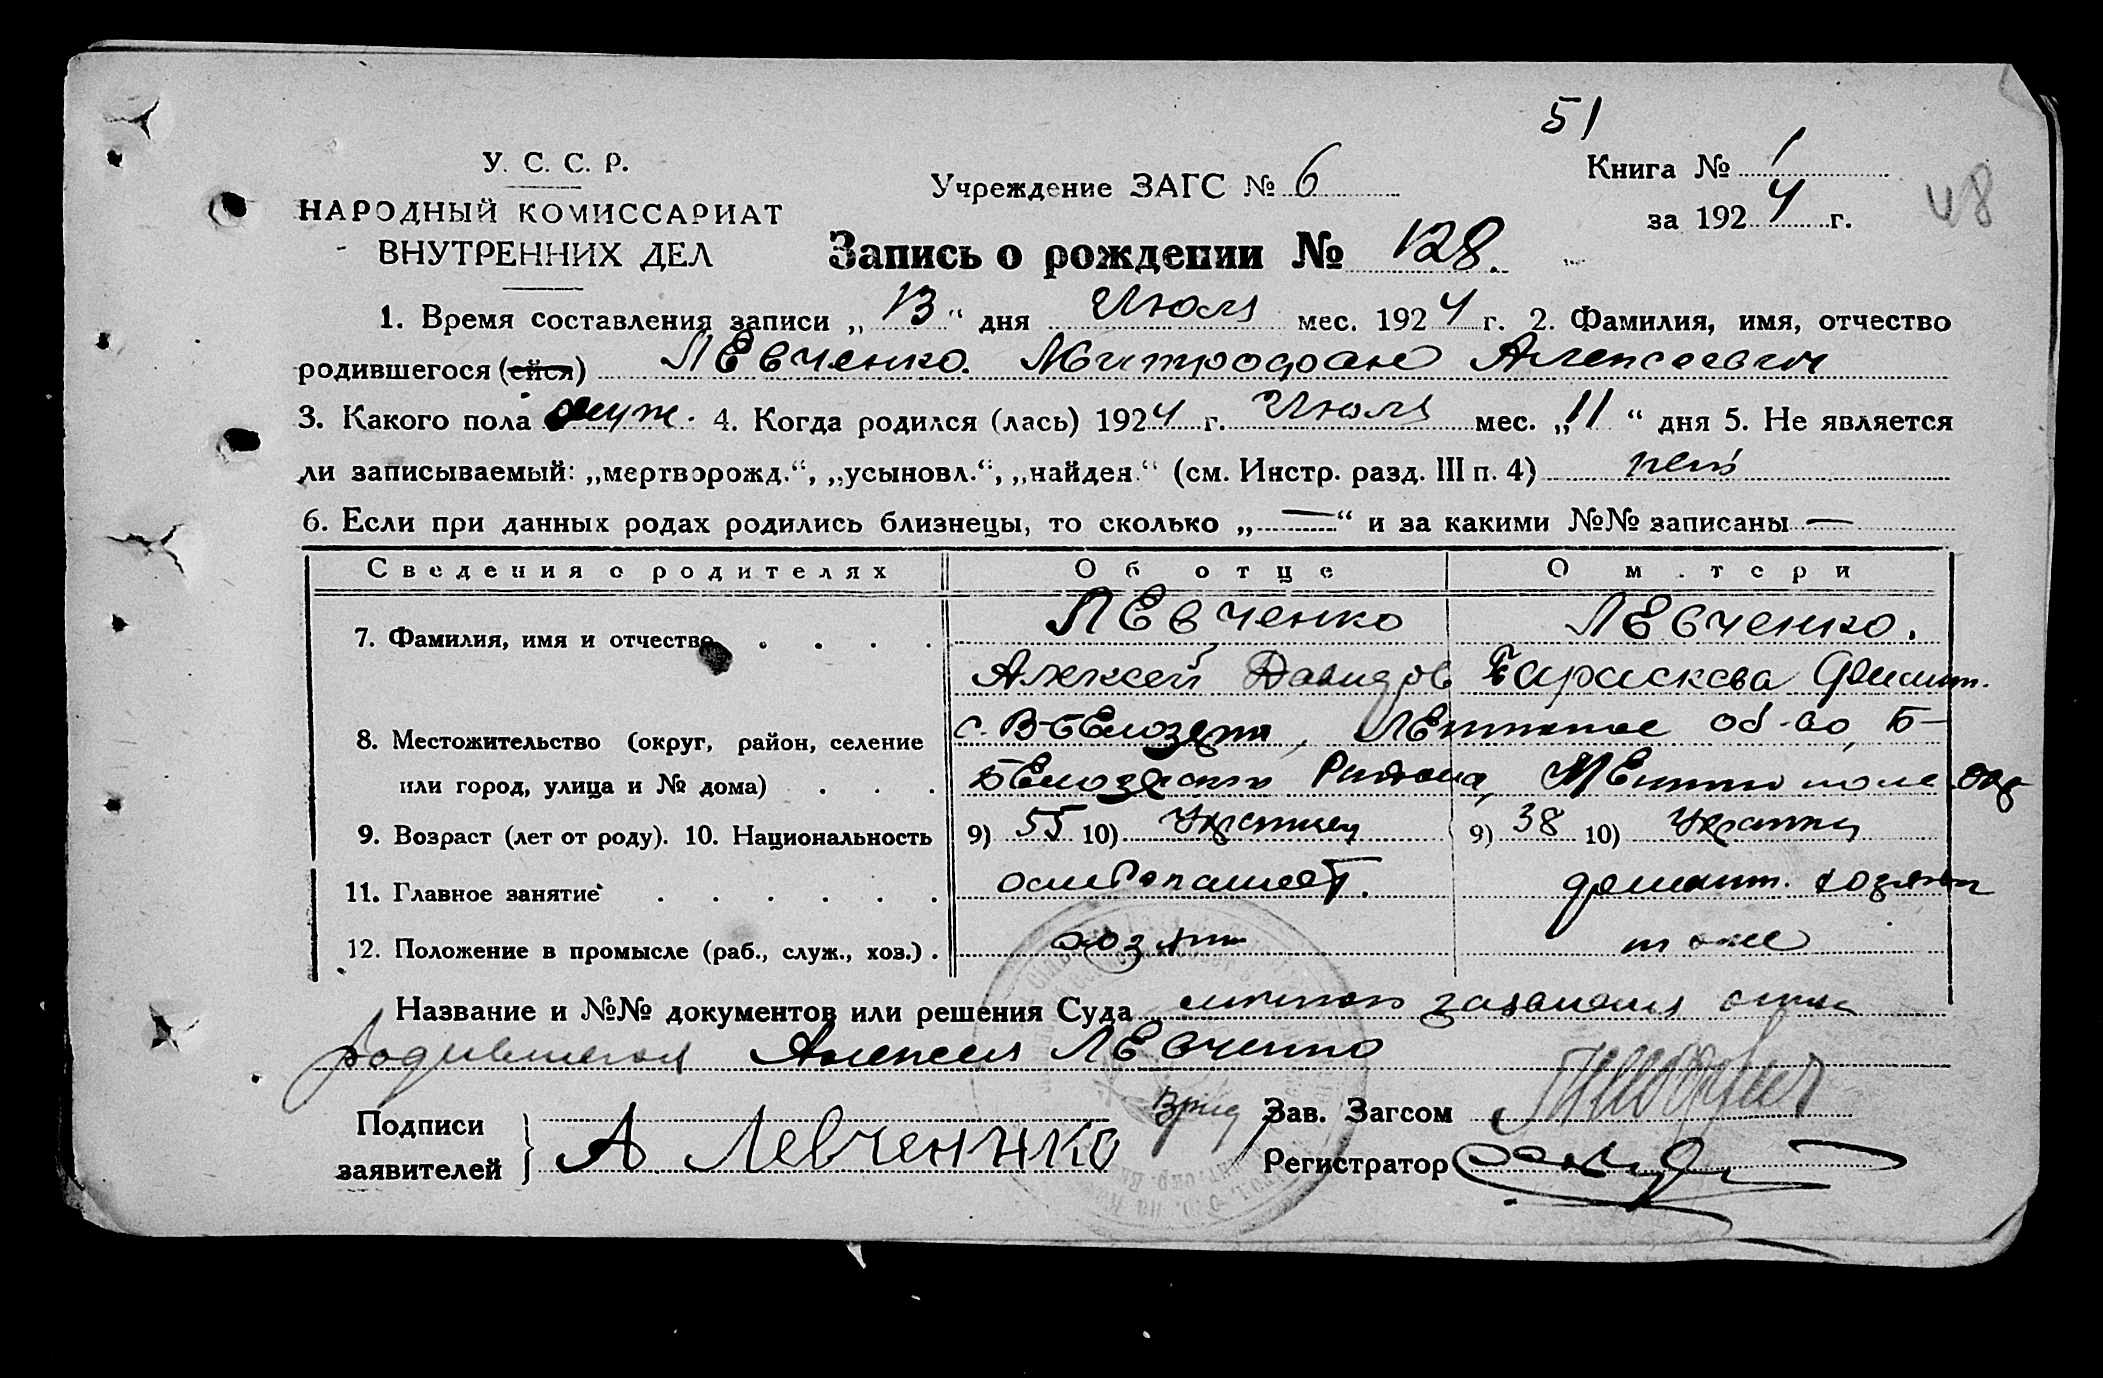 51
У. С. С. Р.
НАРОДНЫЙ КОМИССАРИАТ
ВНУТРЕННИХ ДЕЛ
Учреждение ЗАГС № 6
Книга № 1
за 1924 г.
48
Запись о рождении № 128.
1. Время составления записи „13“ дня Июля мес. 1924 г. 2. Фамилия, имя, отчество
родившегося (ейся) Левченко Митрофан Алексеевич
3. Какого пола муж. 4. Когда родился (лась) 1924 г. Июля мес. „11“ дня 5. Не является
ли записываемый: „мертворожд.“, „усыновл.“, „найден.“ (см. Инстр. разд. III п. 4) нет
6. Если при данных родах родились близнецы, то сколько „—“ и за какими №№ записаны —
Сведения о родителях Об отце О матери
7. Фамилия, имя и отчество Левченко Левченко.
Алексей Давидов Параскева
8. Местожительство (округ, район, селение с. В-Белозерка, об-во, Б-
или город, улица и № дома) Белозерского Района, Мелитополь. окр
9. Возраст (лет от роду). 10. Национальность 9) 55 10) Украинец 9) 38 10) Украинка
11. Главное занятие хлебопашест. домашн. хозяйка
12. Положение в промысле (раб., служ., хоз.) хозяин тоже
Название и №№ документов или решения Суда личное заявление отца
родившегося Алексея Левченко
Подписи
заявителей А Левченнко
Врид Зав. Загсом
Регистратор